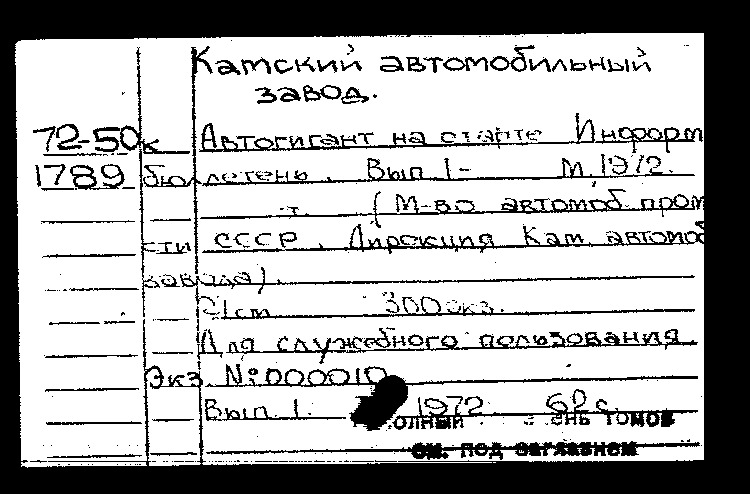 Камский автомобильный
завод.
72-50к Автогигант на старте Информ
1789 бюллетень. Вып 1- М. 1972.
т. (М-во автомоб пром
сти СССР. Дирекция Кам автомоб
завода).
21см 300экз.
Для служебного пользования.
Экз. №000010
Вып 1. 1972 62 с.
олный ень томов
см. под заглавием